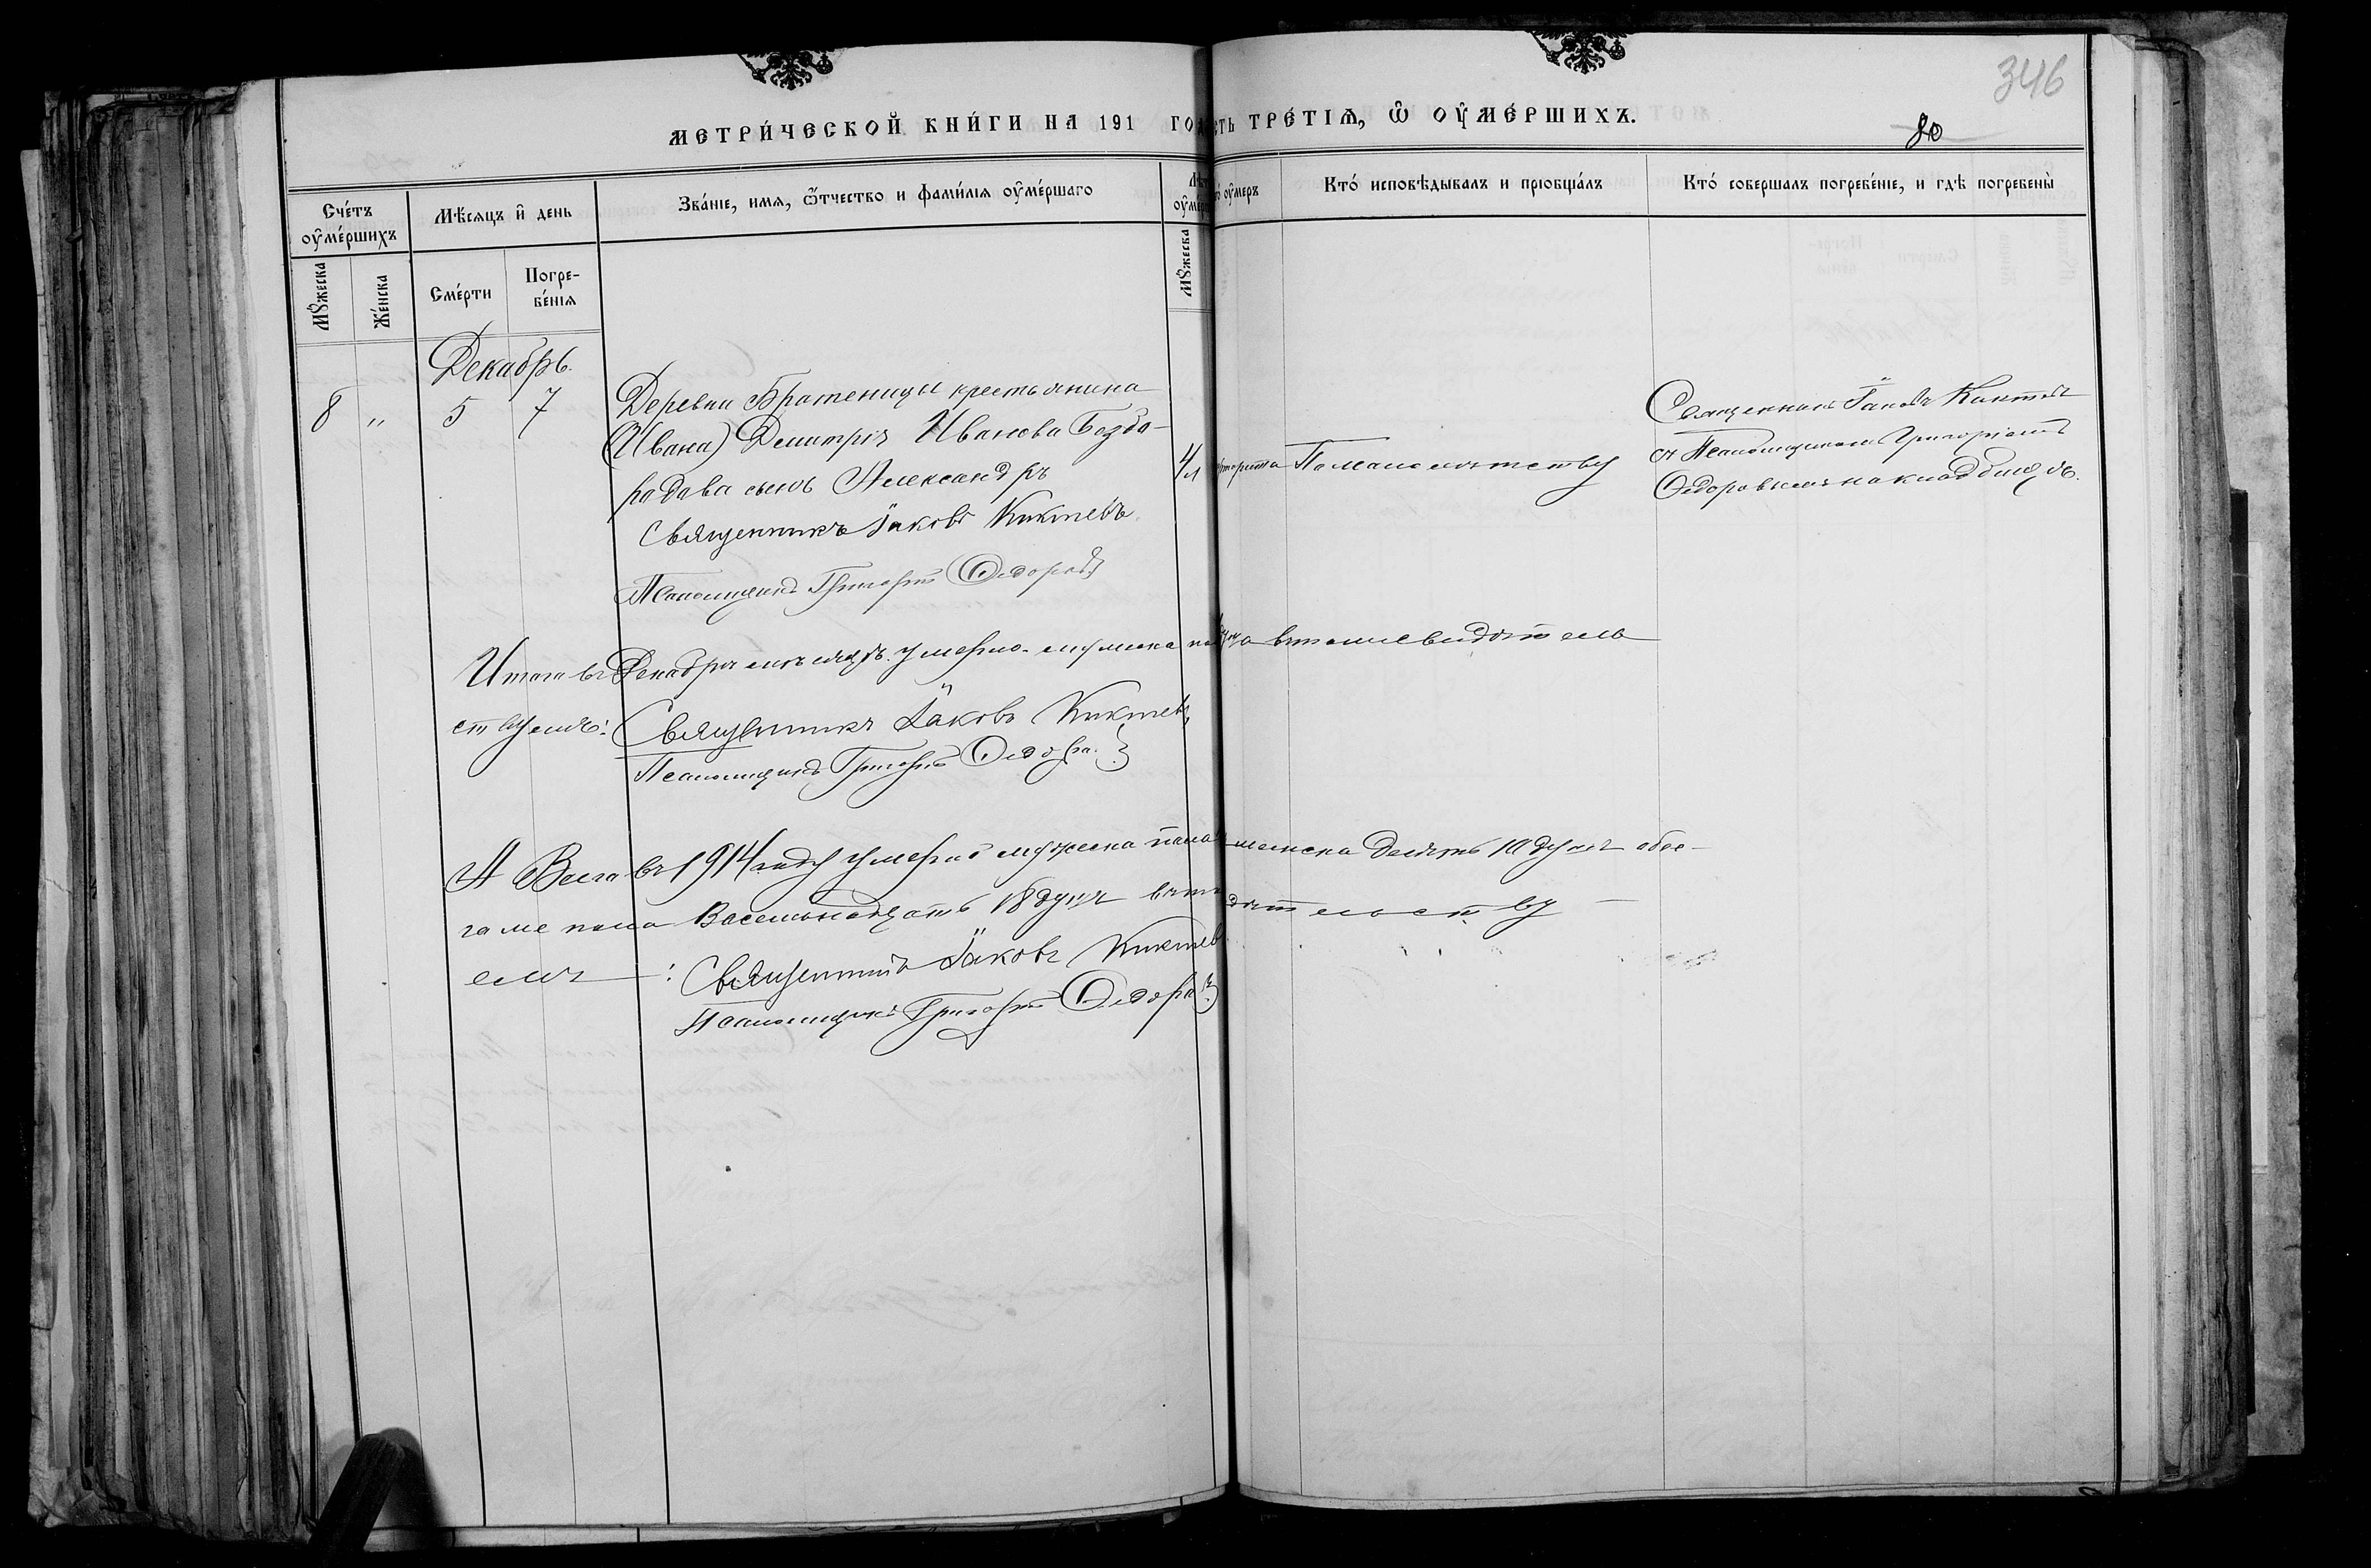 346
80
МЕТРИ́ЧЕСКОЙ КНИ́ГИ НА 191 ГО
СТЬ ТРЕ́ТІѦ, Ѽ ОУ҆МЕ́РШИХЪ.
Сче́тъ оу҆ме́ршихъ
Мѣ́сяцъ и҆ день
Зва́ніе, имя, ѻ҆́тчество и фами́лія оу҆ме́ршаго
оу҆меръ
Кто́ исповѣ́дывалъ и пріобща́лъ
Кто́ совершалъ погребе́ніе, и гдѣ̀ погребены̀
Мꙋ́жеска
Же́нска
Сме́рти
Погребе́нія
Мꙋ́жеска
Декабрь.
8 " 5 7
Деревни Братеницы крестьянина
(Ивана) Димитрія Иванова Бездо-
радава сынъ Александръ
Священникъ Іаковъ Киктевъ
Псаломщикъ Григорій Ѳедоровъ
4
По малолѣтству
Священникъ Іаковъ Киктевъ
съ Псаломщикомъ Григоріемъ
Ѳедоровымъ на кладбищѣ.
Итого въ Декабрѣ мѣсяцѣ умерло мужеска в томъ свидѣтель
ствуемъ: Священникъ Іаковъ Киктевъ
Псаломщикъ Григорій Ѳедоров
А Всего въ 1914 году умерло мужеска пола женска десять 10 душъ обое-
го же пола Восемнадцать 18 душъ
емъ: Священникъ Іаковъ Киктев
Псаломщикъ Григорій Ѳедоровъ